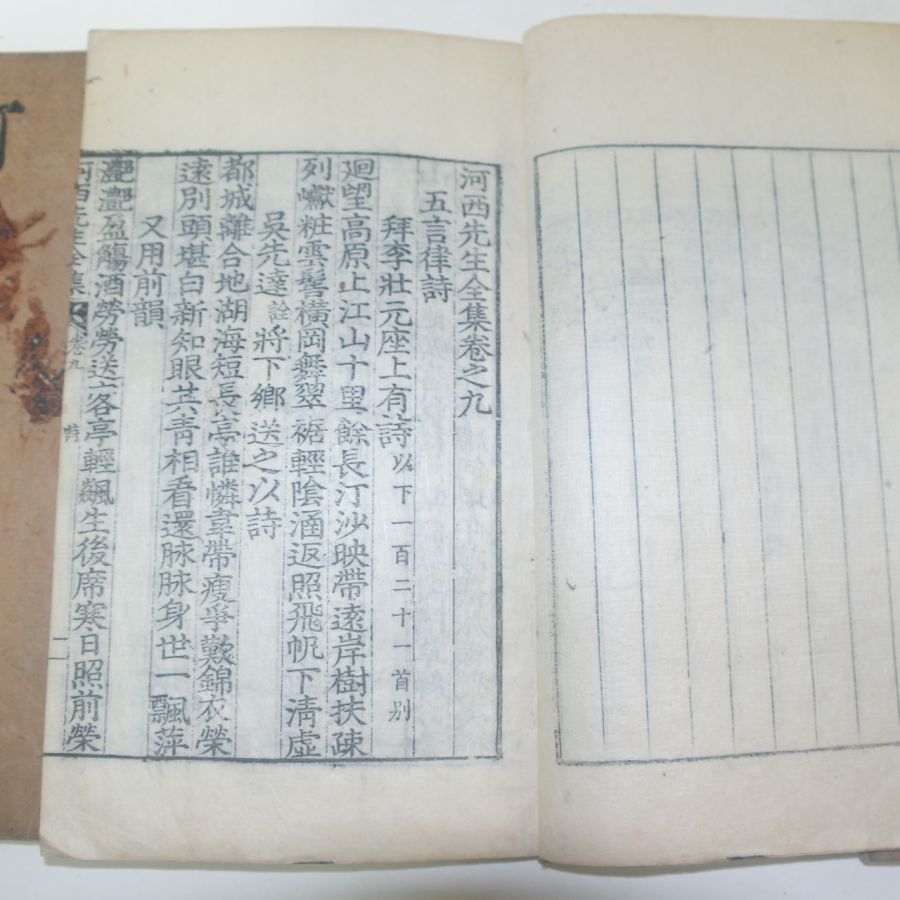 河西先生全集卷之九
五言律詩
拜李壯元座上有詩以下一百二十一首別
廻望高原上江山十里餘長汀沙映帶遠岸樹扶疎
列巘粧雲髻橫岡舞翠裾輕陰涵返照飛帆下淸虛
吳先達詮將下鄕送之以詩
都城離合地湖海短長亭誰憐韋帶瘦爭歎錦衣榮
遠別頭堪白新知眼共靑相看還脉脉身世一飄萍
又用前韻
灩灩盈觴酒勞勞送客亭輕飆生後席寒日照前榮
河西先生全集 卷九 詩 一